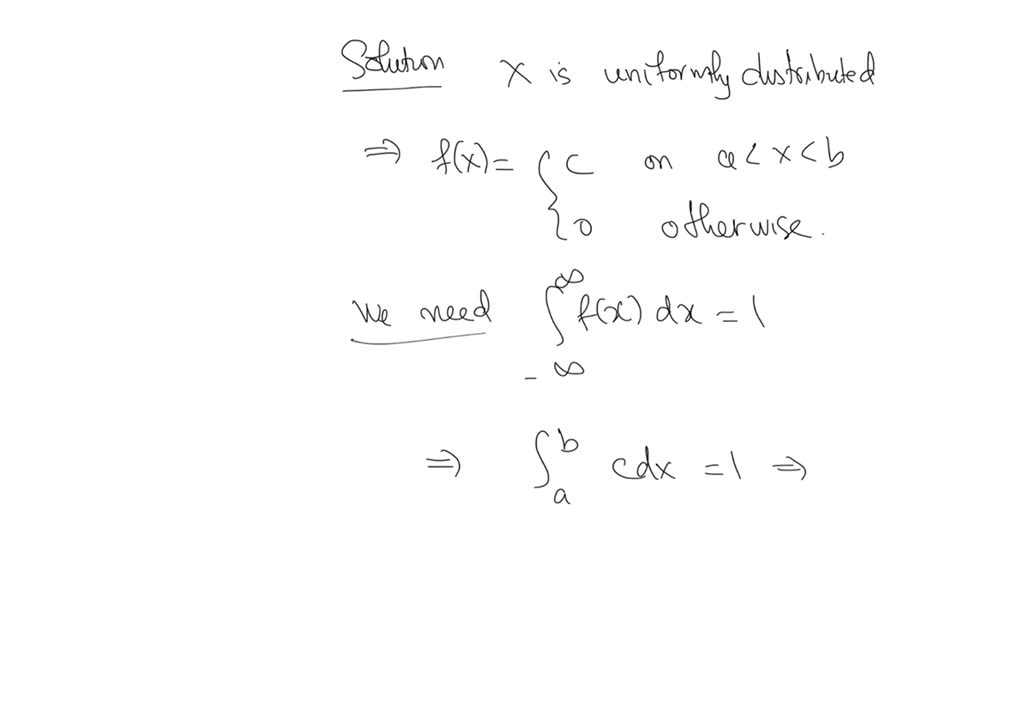 Solution X is uniformly distributed
⇒ f(x) = { C on a < x < b
0 otherwise.
We need ∫_{-∞}^{∞} f(x) dx = 1
⇒ ∫_a^b c dx = 1 ⇒